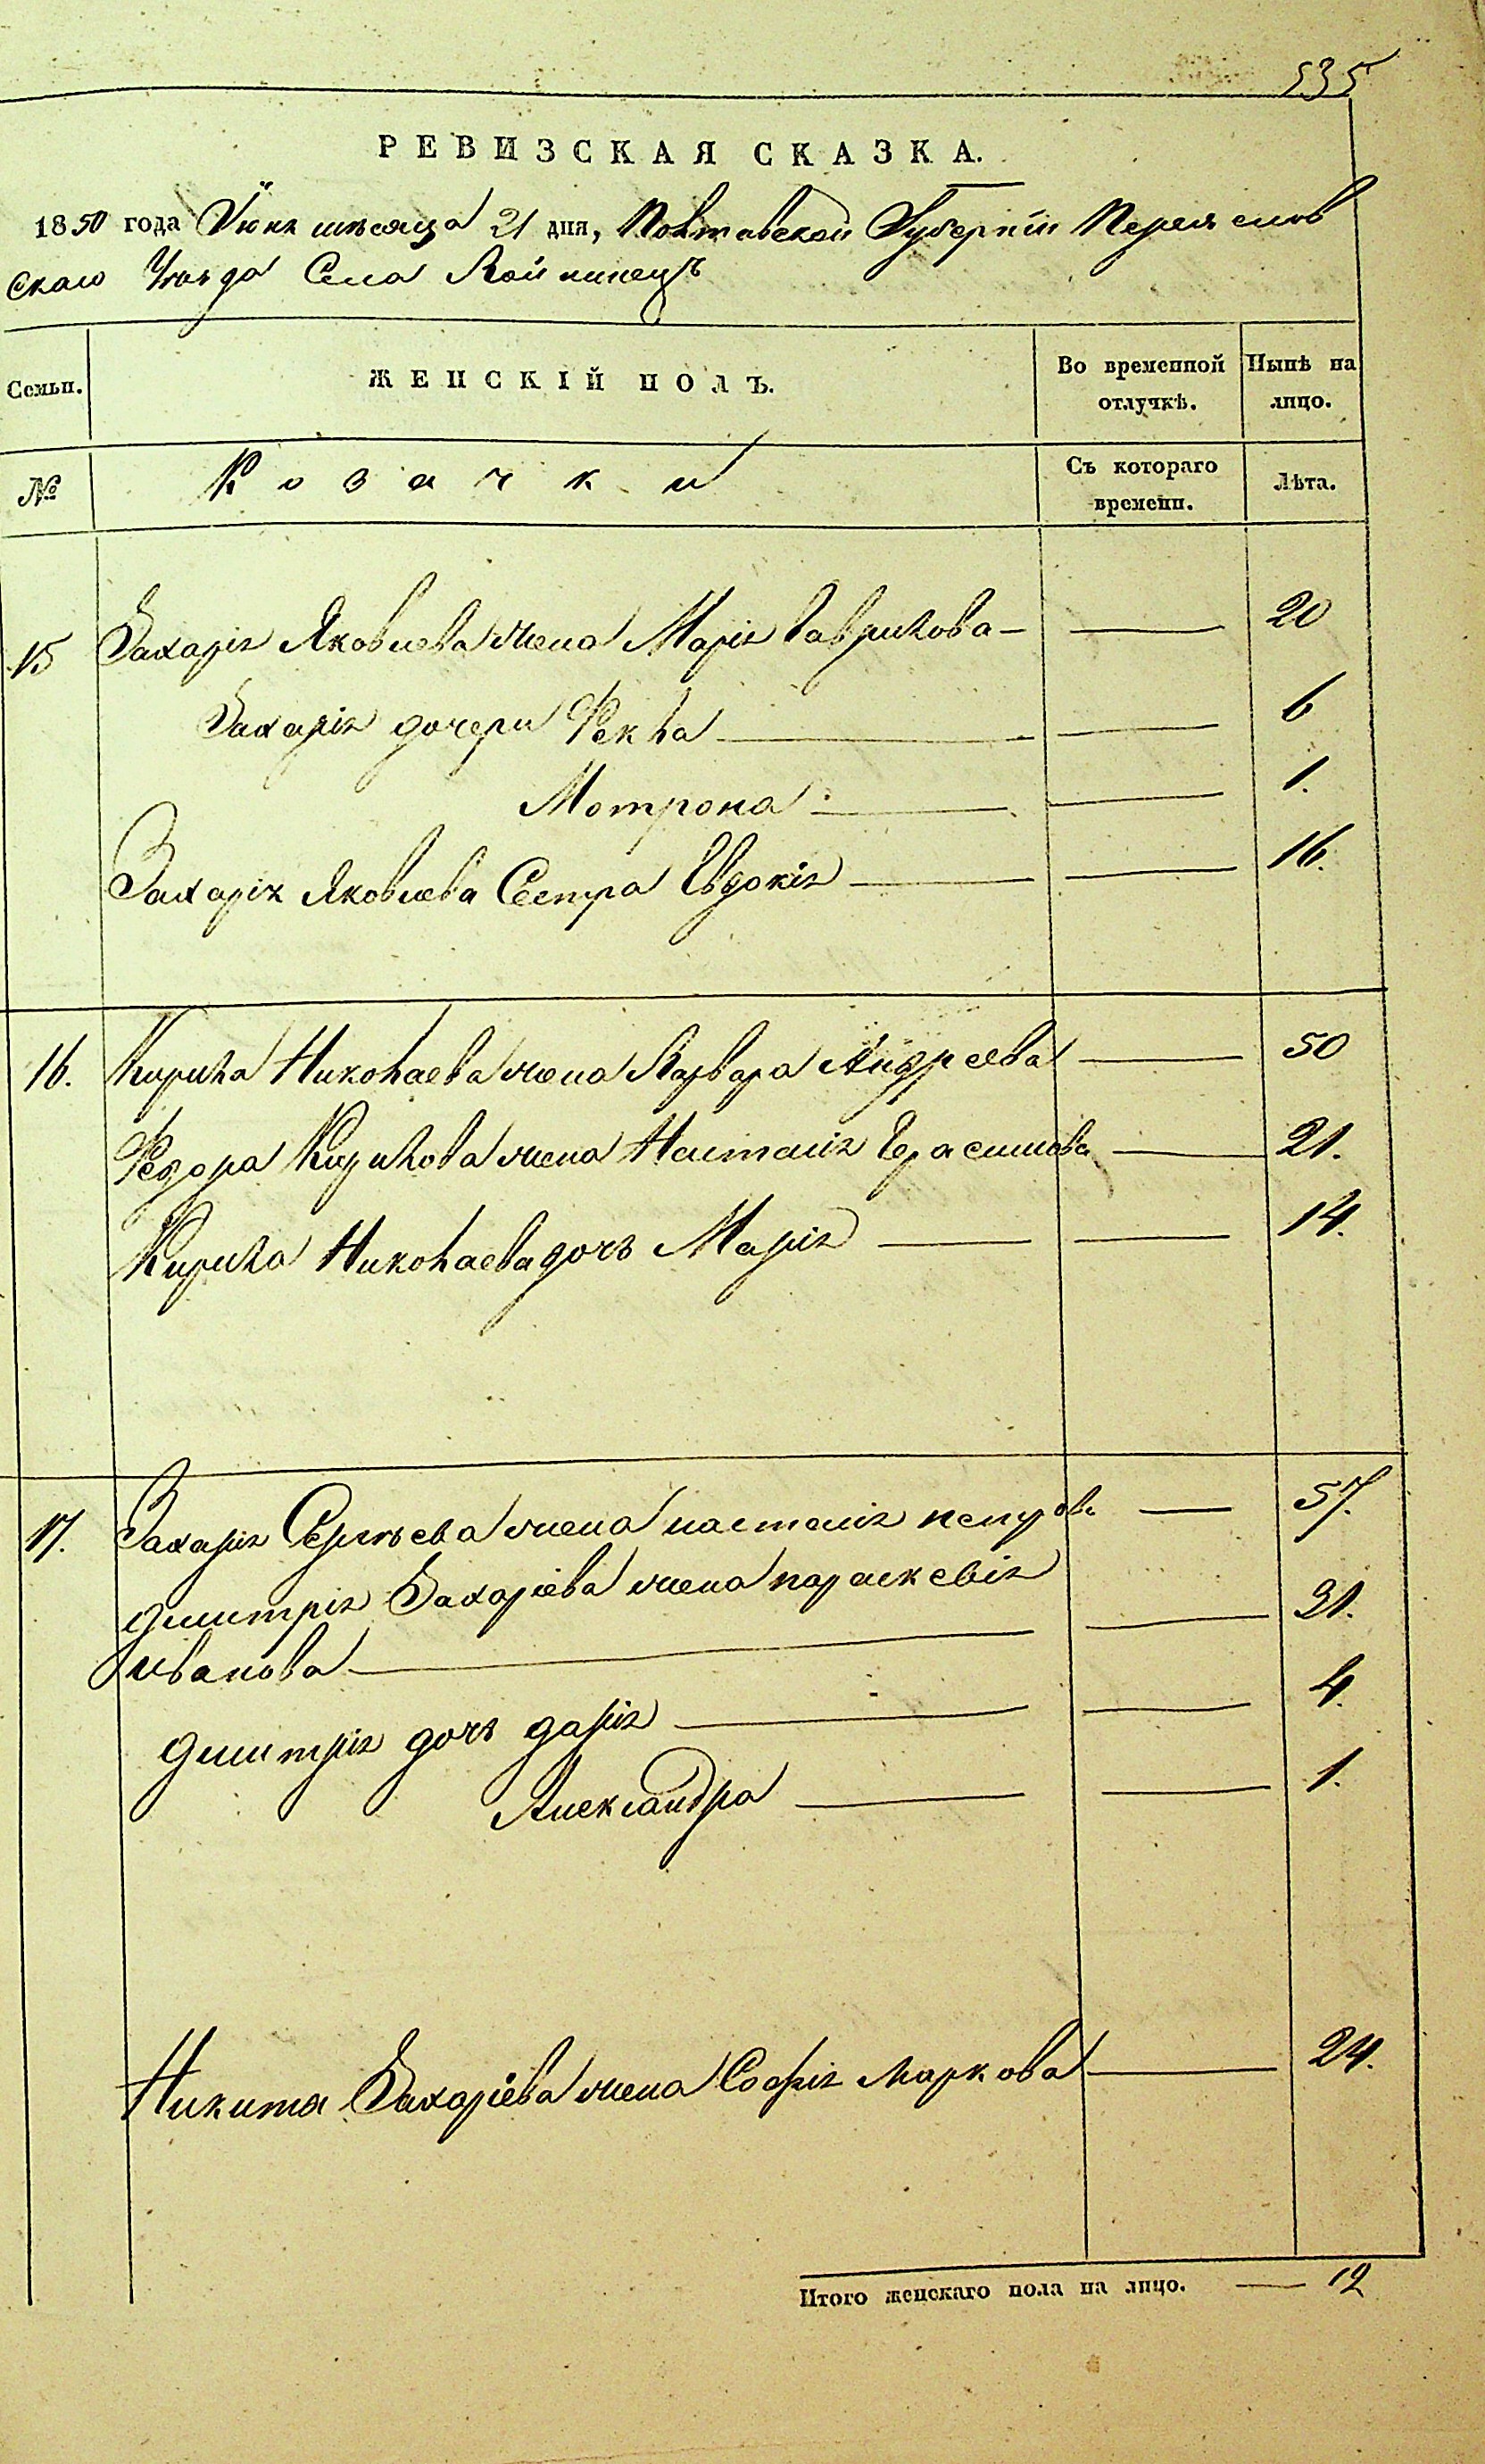 535
РЕВИЗСКАЯ СКАЗКА.
1850 года Іюня мѣсяца 21 дня, Полтавской Губерніи Переяслов
скаго Уѣзда Села Войнинецъ
Семьи. ЖЕНСКІЙ ПОЛЪ. Во временной отлучкѣ. Нынѣ на лицо.
№ Козачки Съ котораго времени. Лѣта.
15 Захарія Яковлева жена Марія Гаврилова — — 20
Захарія дочери Фекла — — 6
Мотрона — — 1.
Захарія Яковлева Сестра Евдокія — — 16.
16. Кирила Николаева жена Варвара Андреева — 50
Федора Кирилова жена Настасія Герасимова — 21.
Кирила Николаева дочь Марія — — 14.
17. Захарія Сергѣева жена настасія петрова — 57.
дмитрія Захаріева жена параскевія
иванова — — 31.
дмитрія дочь дарія — — 4.
Александра — — 1.
Никита Захаріева жена Софія маркова — 24.
Итого женскаго пола на лицо. — 12